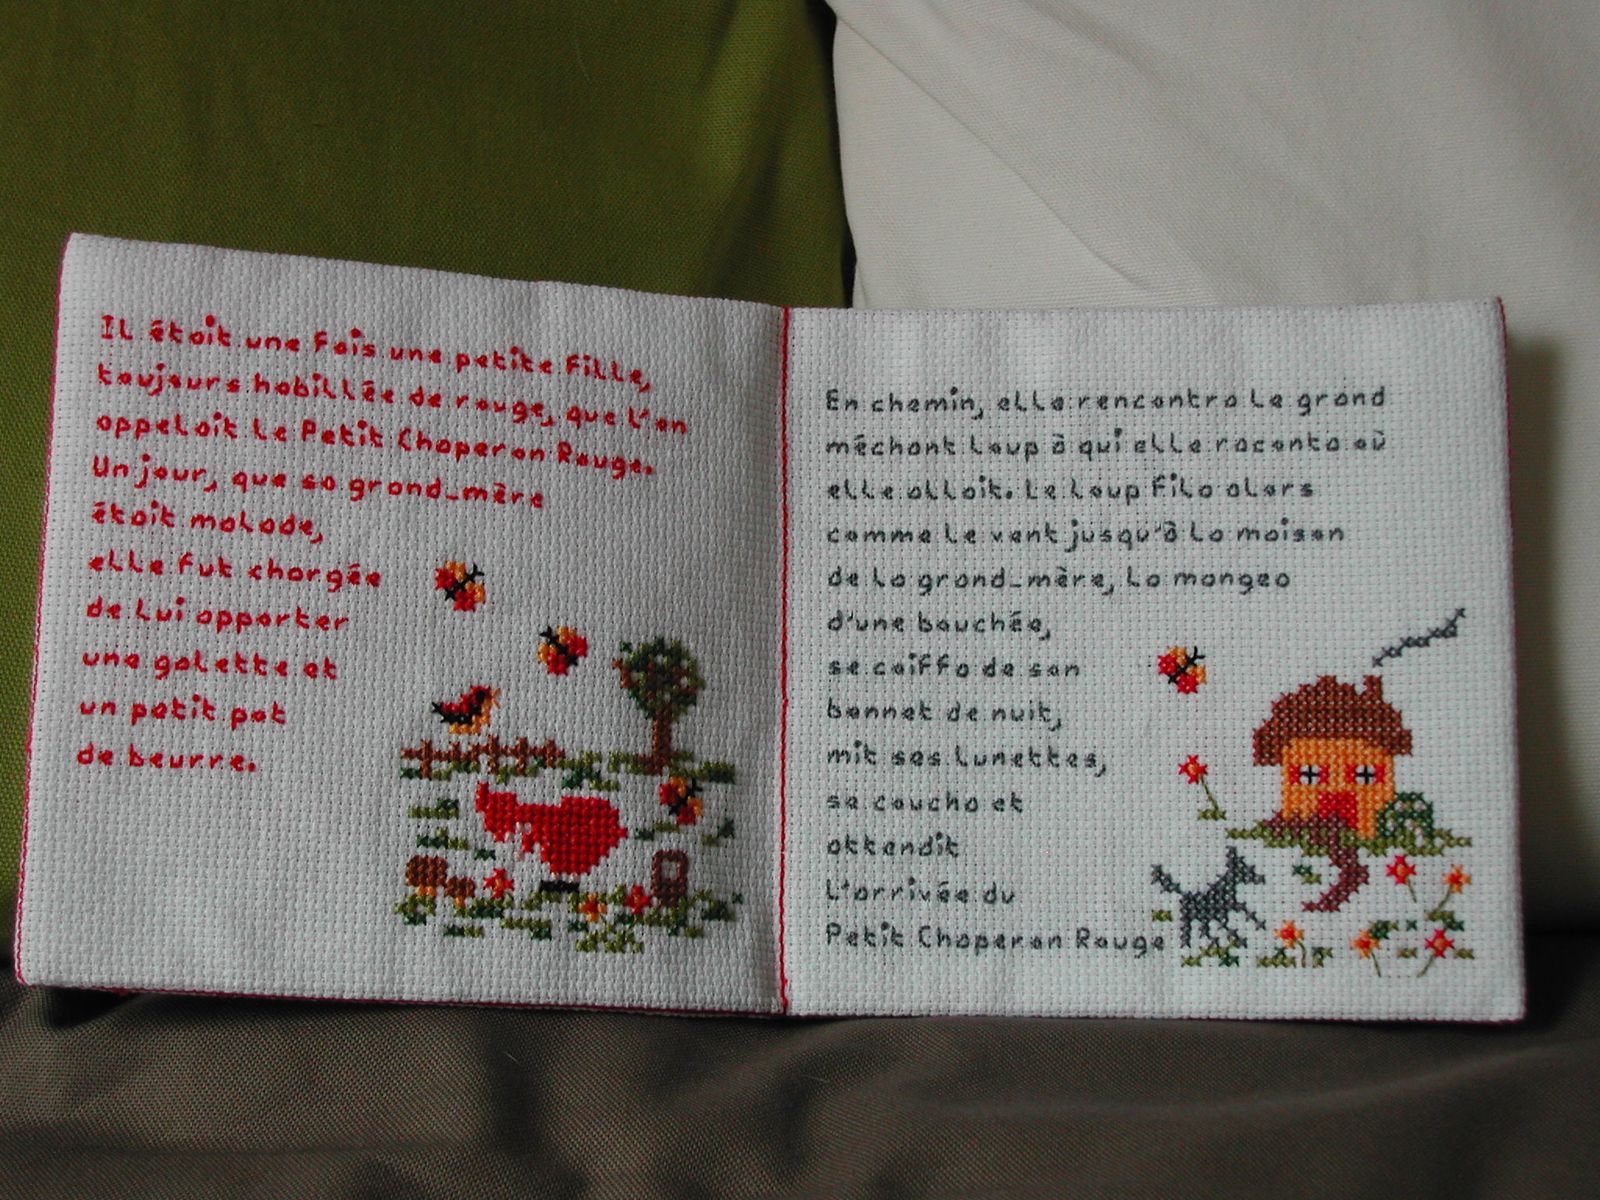 Il était une fois une petite fille,
toujours habillée de rouge, que l'on
appelait le Petit Chaperon Rouge.
Un jour, que sa grand-mère
était malade,
elle fut chargée
de lui apporter
une galette et
un petit pot
de beurre.
En chemin, elle rencontra le grand
méchant loup à qui elle raconta où
elle allait. Le loup fila alors
comme le vent jusqu'à la maison
de la grand-mère, la mangea
d'une bouchée,
se coiffa de son
bonnet de nuit,
mit ses lunettes,
se coucha et
attendit
l'arrivée du
Petit Chaperon Rouge